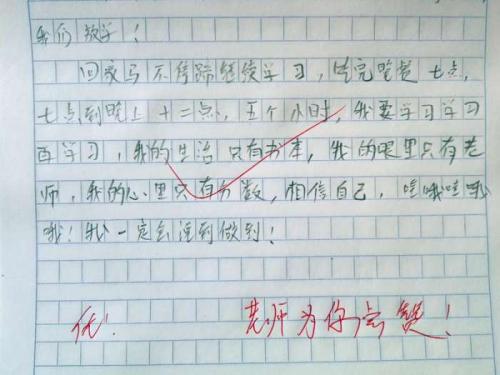 我们放学！
回家马不停蹄继续学习，先完整整七点，
七点到晚上十二点，五个小时，我要学习学习
再学习，我的生活只有书本，我的眼里只有老
师，我的心里只有分数，相信自己，哇哦哇哦
哦！我一定会说到做到！
优！ 老师为你点赞！